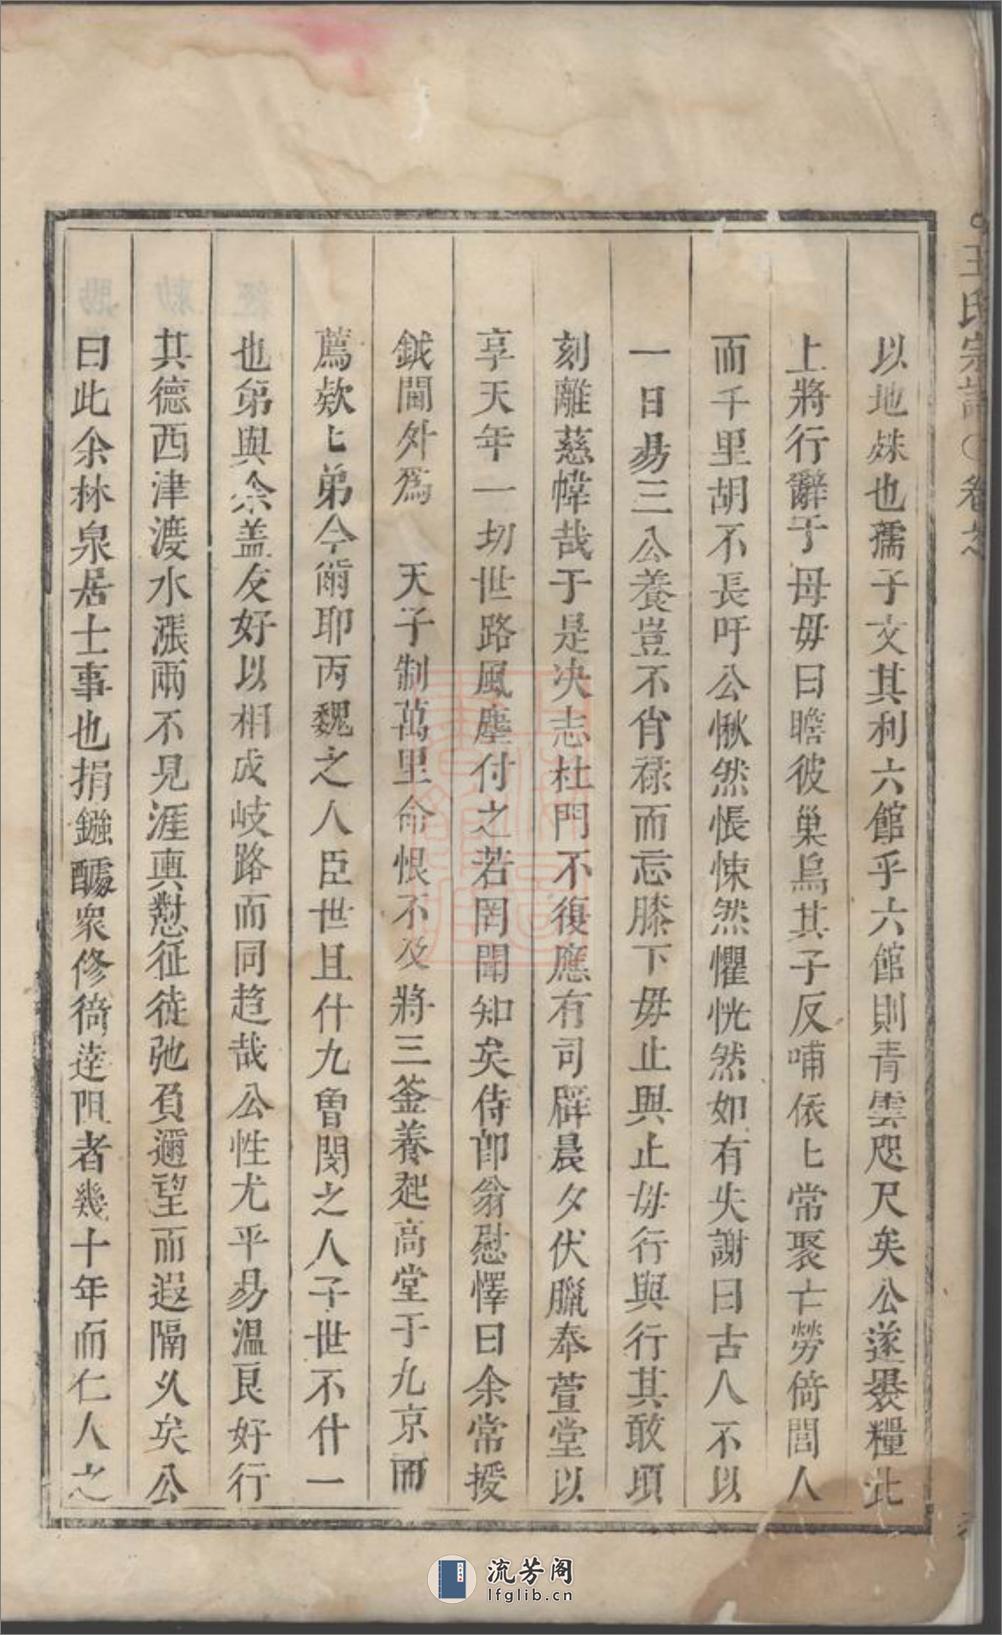 王氏宗譜
以地殊也孺子文其利六館乎六館則青雲咫尺矣公遂裹糧北
上將行辭于母毋曰瞻彼巢烏其子反哺依匕常聚亡勞倚閭人
而千里胡不長吁公愀然悵悚然懼恍然如有失謝曰古人不以
一日易三公養豈不肖祿而忘膝下毋止與止毋行與行其敢頃
刻離慈幃哉于是决志杜門不復應有司辟晨夕伏臘奉萱堂以
享天年一切世路風塵付之若罔聞知矣侍郎翁慰懌曰余常授
鉞閫外爲　天子制萬里命恨不及將三釜養起高堂于九京而
薦欵匕弟今爾耶丙魏之人臣世且什九曾閔之人子世不什一
也第與余盖友好以相成岐路而同趋哉公性尤平易温良好行
其德西津渡水漲兩不見涯輿懟征徒弛負邇望而遐隔久矣公
曰此余林泉居士事也捐鏹醵衆修徛逹阻者幾十年而仁人之
流芳阁
lfglib.cn